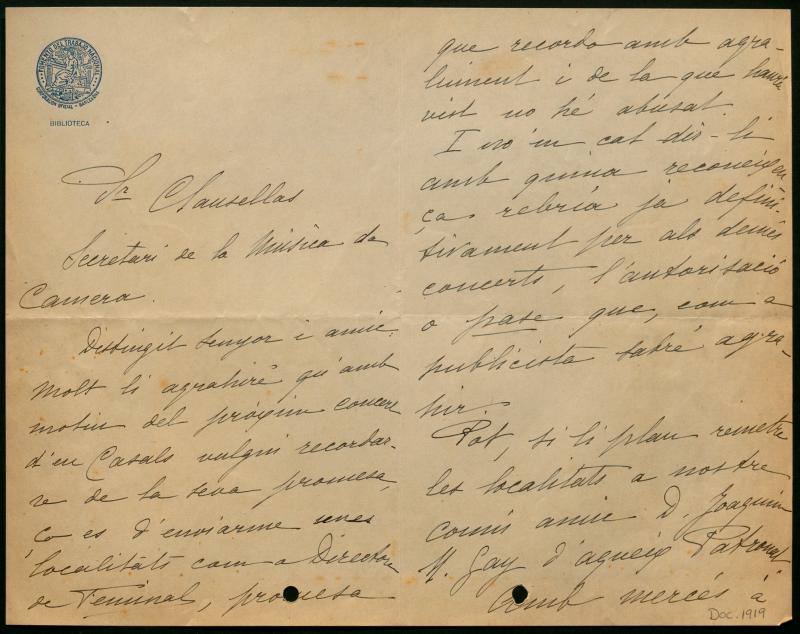 FOMENTO DEL TRABAJO NACIONAL
CORPORACIÓN OFICIAL - BARCELONA
BIBLIOTECA
Sr Clausellas
Secretari de la Música da
Camera.
Distingit senyor i amic:
Molt li agrahiré qu'amb
motiu del próxim concert
d'en Casals vulgui recordar-
se de la seva promesa,
ço es d'enviarme unes
localitats com a Directora
de Feminal, promesa
que recordo amb agra-
himent i de la que haurá
vist no hé abusat.
I no'm cal dir-li
amb quina reconeixen
ça rebría ja defini-
tivament per als demés
concerts, l'autorisació
o pase que, com a
publicista sabré agra-
hir.
Pot, si li plau remetre
les localitats a nostre
comú amic D. Joaquim
M. Gay d'aqueix Patronat
Amb mercés á
Doc. 1919